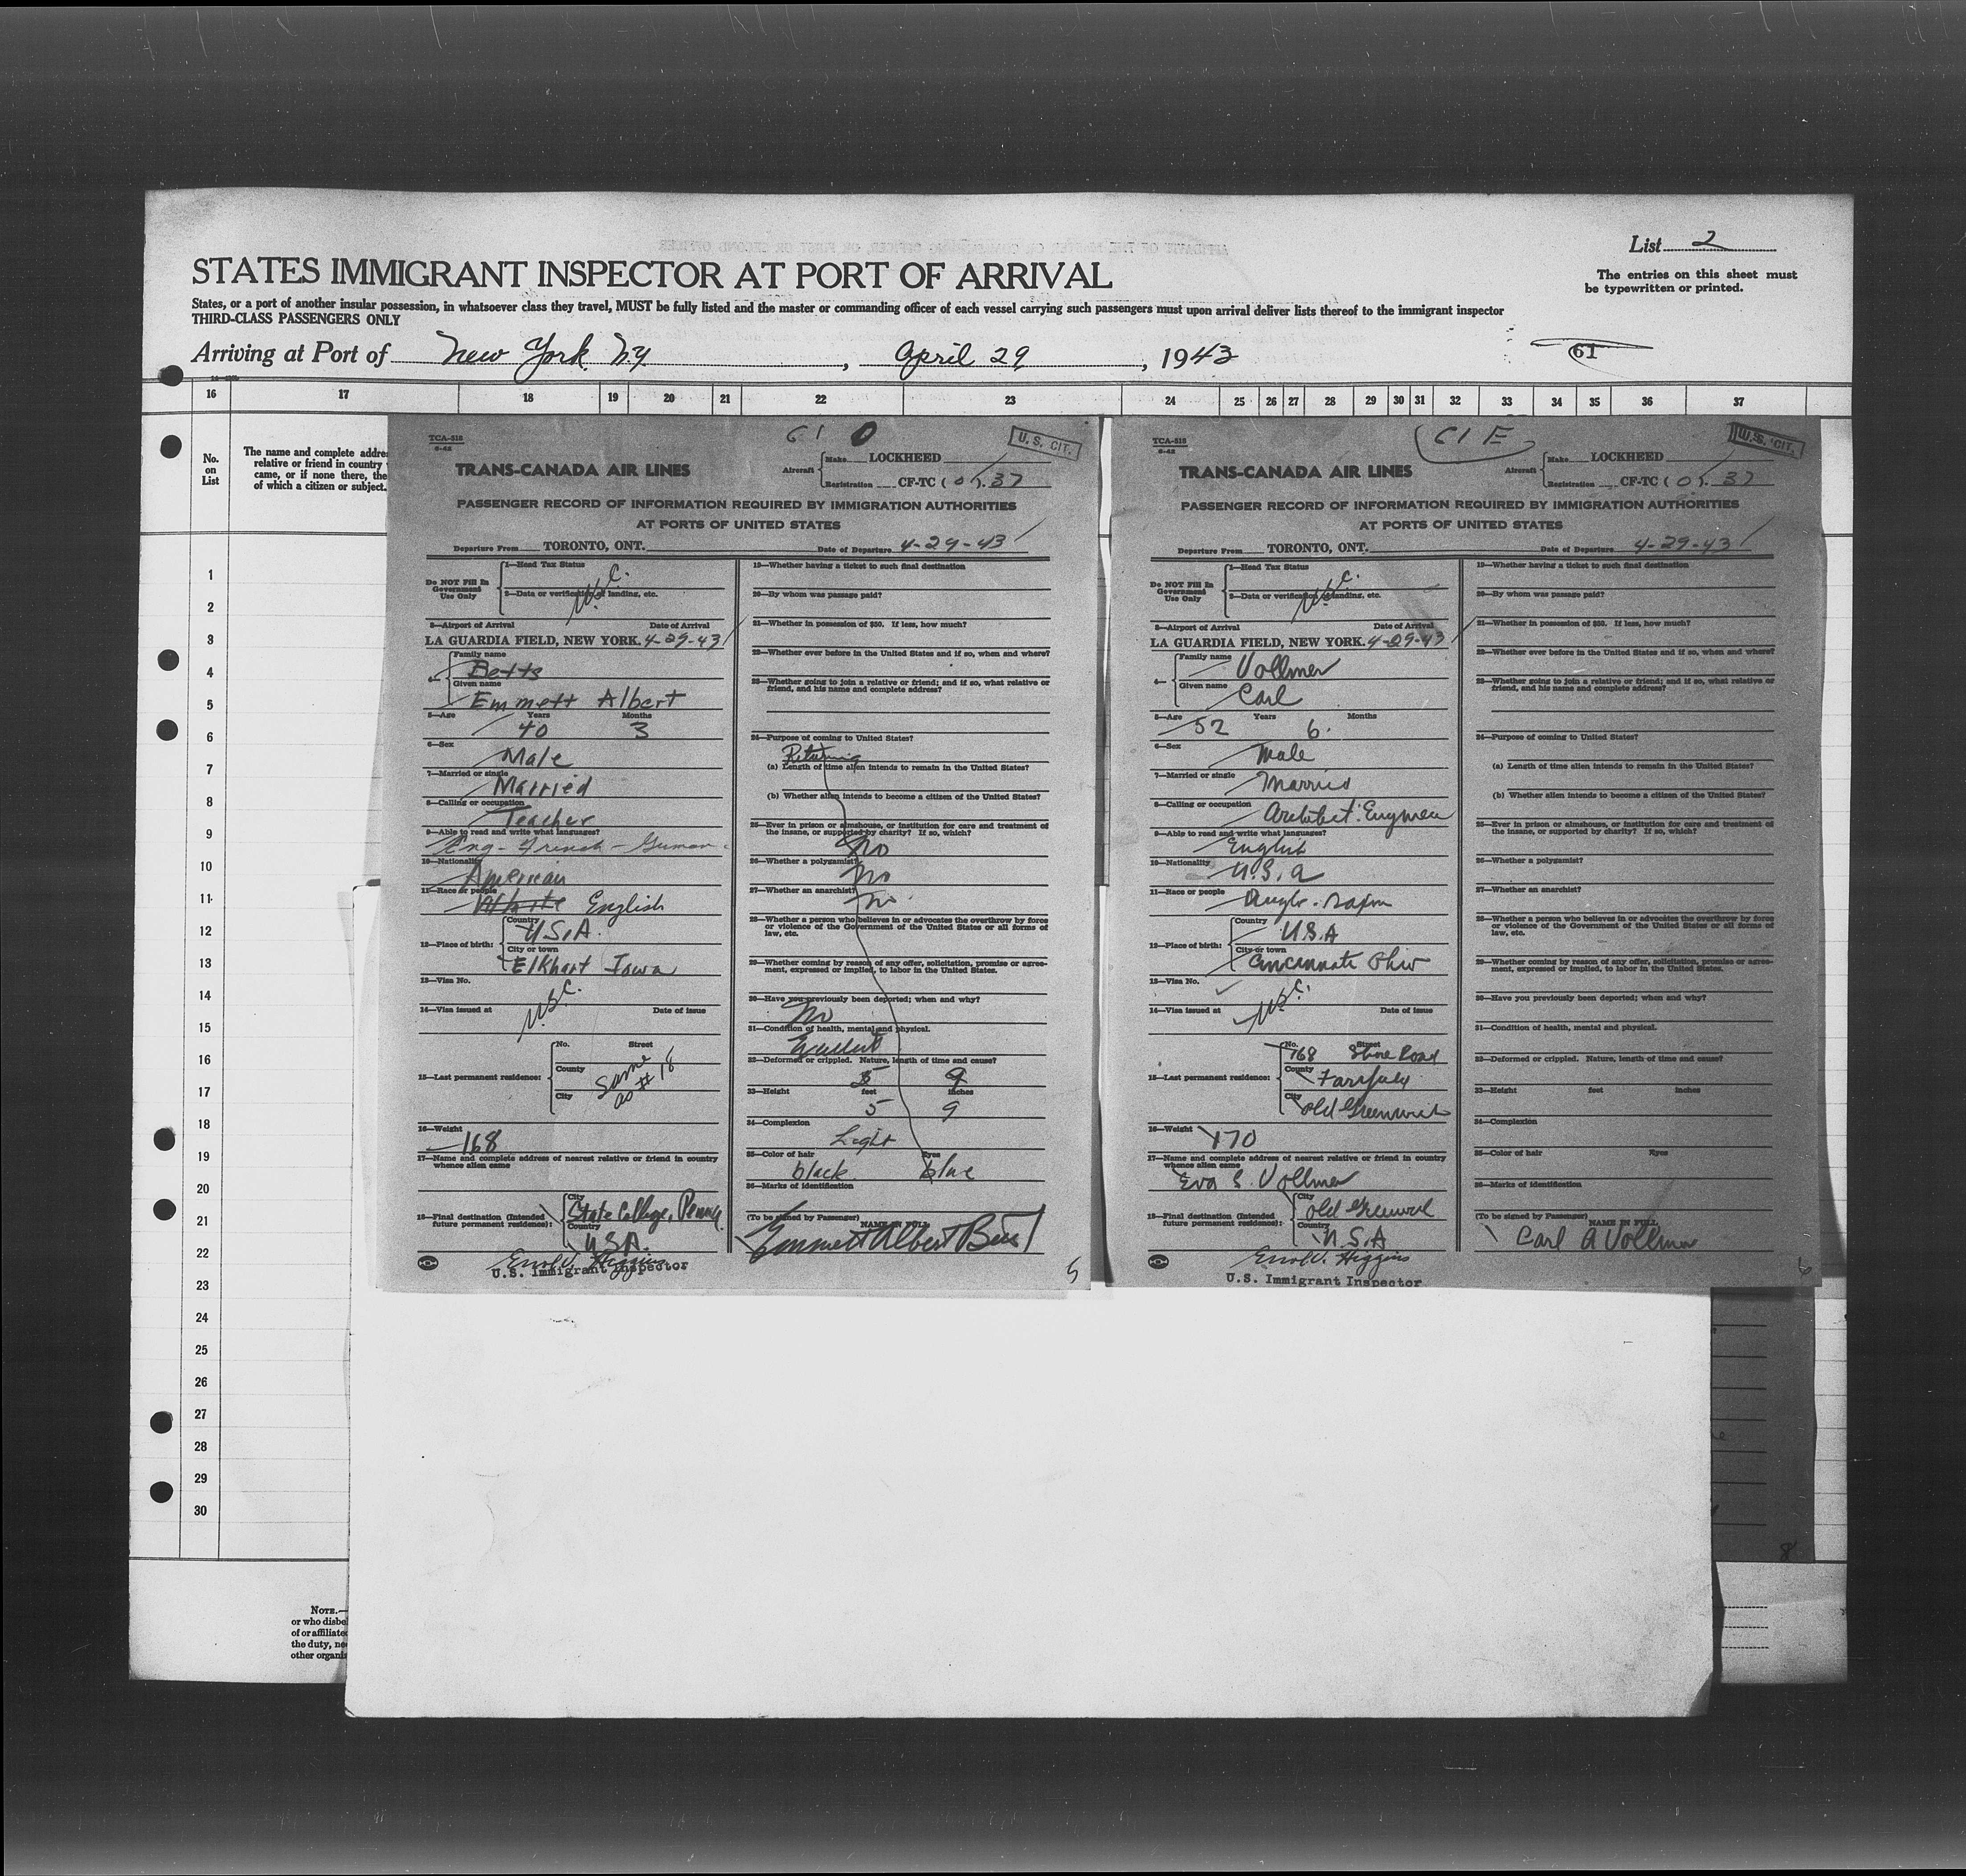 List 2
STATES IMMIGRANT INSPECTOR AT PORT OF ARRIVAL
The entries on this sheet must
be typewritten or printed.
States, or a port of another insular possession, in whatsoever class they travel, MUST be fully listed and the master or commanding officer of each vessel carrying such passengers must upon arrival deliver lists thereof to the immigrant inspector
THIRD-CLASS PASSENGERS ONLY
Arriving at Port of New York N.Y. , April 29 , 1943
61
16 17 18 19 20 21 22 23 24 25 26 27 28 29 30 31 32 33 34 35 36 37
No.
on
List
The name and complete addre
relative or friend in country
came, or if none there, the
of which a citizen or subject.
1
2
3
4
5
6
7
8
9
10
11
12
13
14
15
16
17
18
19
20
21
22
23
24
25
26
27
28
29
30
NOTE.—
or who disbe
of or affiliate
the duty, ne
other organi
TCA-518
6-42
61 D
U. S. CIT.
TRANS-CANADA AIR LINES
Aircraft
Make LOCKHEED
Registration CF-TC ( 37
PASSENGER RECORD OF INFORMATION REQUIRED BY IMMIGRATION AUTHORITIES
AT PORTS OF UNITED STATES
Departure From TORONTO, ONT. Date of Departure 4-29-43
Do NOT Fill In
Government
Use Only
1—Head Tax Status
2—Data or verification of landing, etc.
U.S.C.
3—Airport of Arrival Date of Arrival
LA GUARDIA FIELD, NEW YORK. 4-29-43
4—
Family name
Betts
Given name
Emmett Albert
5—Age Years Months
40 3
6—Sex
Male
7—Married or single
Married
8—Calling or occupation
Teacher
9—Able to read and write what languages?
Eng - French - German
10—Nationality
American
11—Race or people
White English
12—Place of birth:
Country
U.S.A.
City or town
Elkhart Iowa
13—Visa No.
U.S.C.
14—Visa issued at Date of issue
15—Last permanent residence:
No. Street
County
City
Same
as # 18
16—Weight
168
17—Name and complete address of nearest relative or friend in country
whence alien came
18—Final destination (Intended
future permanent residence):
City
State College, Penna.
Country
U.S.A.
Errol V. Higgins
U.S. Immigrant Inspector
19—Whether having a ticket to such final destination
20—By whom was passage paid?
21—Whether in possession of $50. If less, how much?
22—Whether ever before in the United States and if so, when and where?
23—Whether going to join a relative or friend; and if so, what relative or
friend, and his name and complete address?
24—Purpose of coming to United States?
Returning
(a) Length of time alien intends to remain in the United States?
(b) Whether alien intends to become a citizen of the United States?
25—Ever in prison or almshouse, or institution for care and treatment of
the insane, or supported by charity? If so, which?
No
26—Whether a polygamist?
No
27—Whether an anarchist?
No
28—Whether a person who believes in or advocates the overthrow by force
or violence of the Government of the United States or all forms of
law, etc.
29—Whether coming by reason of any offer, solicitation, promise or agree-
ment, expressed or implied, to labor in the United States.
30—Have you previously been deported; when and why?
No
31—Condition of health, mental and physical.
Excellent
32—Deformed or crippled. Nature, length of time and cause?
5 9
33—Height feet inches
5 9
34—Complexion
Light
35—Color of hair Eyes
black blue
36—Marks of identification
(To be signed by Passenger)
NAME IN FULL
Emmett Albert Betts
5
TCA-518
6-42
61 E
U. S. CIT.
TRANS-CANADA AIR LINES
Aircraft
Make LOCKHEED
Registration CF-TC ( 37
PASSENGER RECORD OF INFORMATION REQUIRED BY IMMIGRATION AUTHORITIES
AT PORTS OF UNITED STATES
Departure From TORONTO, ONT. Date of Departure 4-29-43
Do NOT Fill In
Government
Use Only
1—Head Tax Status
2—Data or verification of landing, etc.
U.S.C.
3—Airport of Arrival Date of Arrival
LA GUARDIA FIELD, NEW YORK. 4-29-43
4—
Family name
Vollmer
Given name
Carl
5—Age Years Months
52 6.
6—Sex
Male
7—Married or single
Married
8—Calling or occupation
Architect. Engineer
9—Able to read and write what languages?
English
10—Nationality
U.S.A
11—Race or people
Anglo-Saxon
12—Place of birth:
Country
U.S.A
City or town
Cincinnati Ohio
13—Visa No.
U.S.C.
14—Visa issued at Date of issue
15—Last permanent residence:
No. Street
168 Shore Road
County
Fairfield
City
Old Greenwich
16—Weight
170
17—Name and complete address of nearest relative or friend in country
whence alien came
Eva S. Vollmer
18—Final destination (Intended
future permanent residence):
City
Old Greenwich
Country
U.S.A
Errol V. Higgins
U.S. Immigrant Inspector
19—Whether having a ticket to such final destination
20—By whom was passage paid?
21—Whether in possession of $50. If less, how much?
22—Whether ever before in the United States and if so, when and where?
23—Whether going to join a relative or friend; and if so, what relative or
friend, and his name and complete address?
24—Purpose of coming to United States?
(a) Length of time alien intends to remain in the United States?
(b) Whether alien intends to become a citizen of the United States?
25—Ever in prison or almshouse, or institution for care and treatment of
the insane, or supported by charity? If so, which?
26—Whether a polygamist?
27—Whether an anarchist?
28—Whether a person who believes in or advocates the overthrow by force
or violence of the Government of the United States or all forms of
law, etc.
29—Whether coming by reason of any offer, solicitation, promise or agree-
ment, expressed or implied, to labor in the United States.
30—Have you previously been deported; when and why?
31—Condition of health, mental and physical.
32—Deformed or crippled. Nature, length of time and cause?
33—Height feet inches
34—Complexion
35—Color of hair Eyes
36—Marks of identification
(To be signed by Passenger)
NAME IN FULL
Carl A Vollmer
6
8